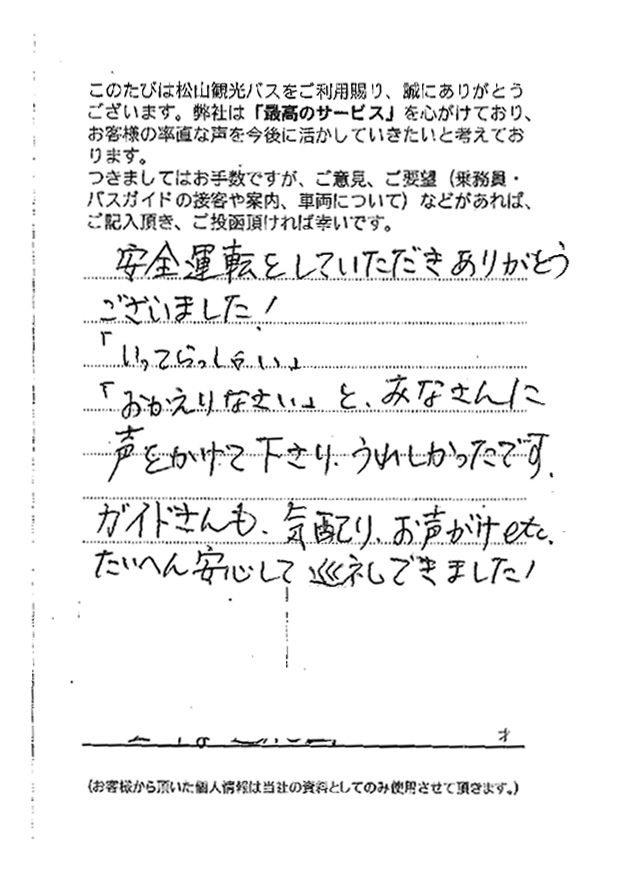 このたびは松山観光バスをご利用賜り、誠にありがとう
ございます。弊社は「最高のサービス」を心がけており、
お客様の率直な声を今後に活かしていきたいと考えてお
ります。
つきましてはお手数ですが、ご意見、ご要望（乗務員・
バスガイドの接客や案内、車両について）などがあれば、
ご記入頂き、ご投函頂ければ幸いです。
安全運転をしていただきありがとう
ございました!
「いってらっしゃい」
「おかえりなさい」と、みなさんに
声をかけて下さり、うれしかったです。
ガイドさんも、気配り、お声がけetc.
たいへん安心して巡礼できました!
才
（お客様から頂いた個人情報は当社の資料としてのみ使用させて頂きます。）